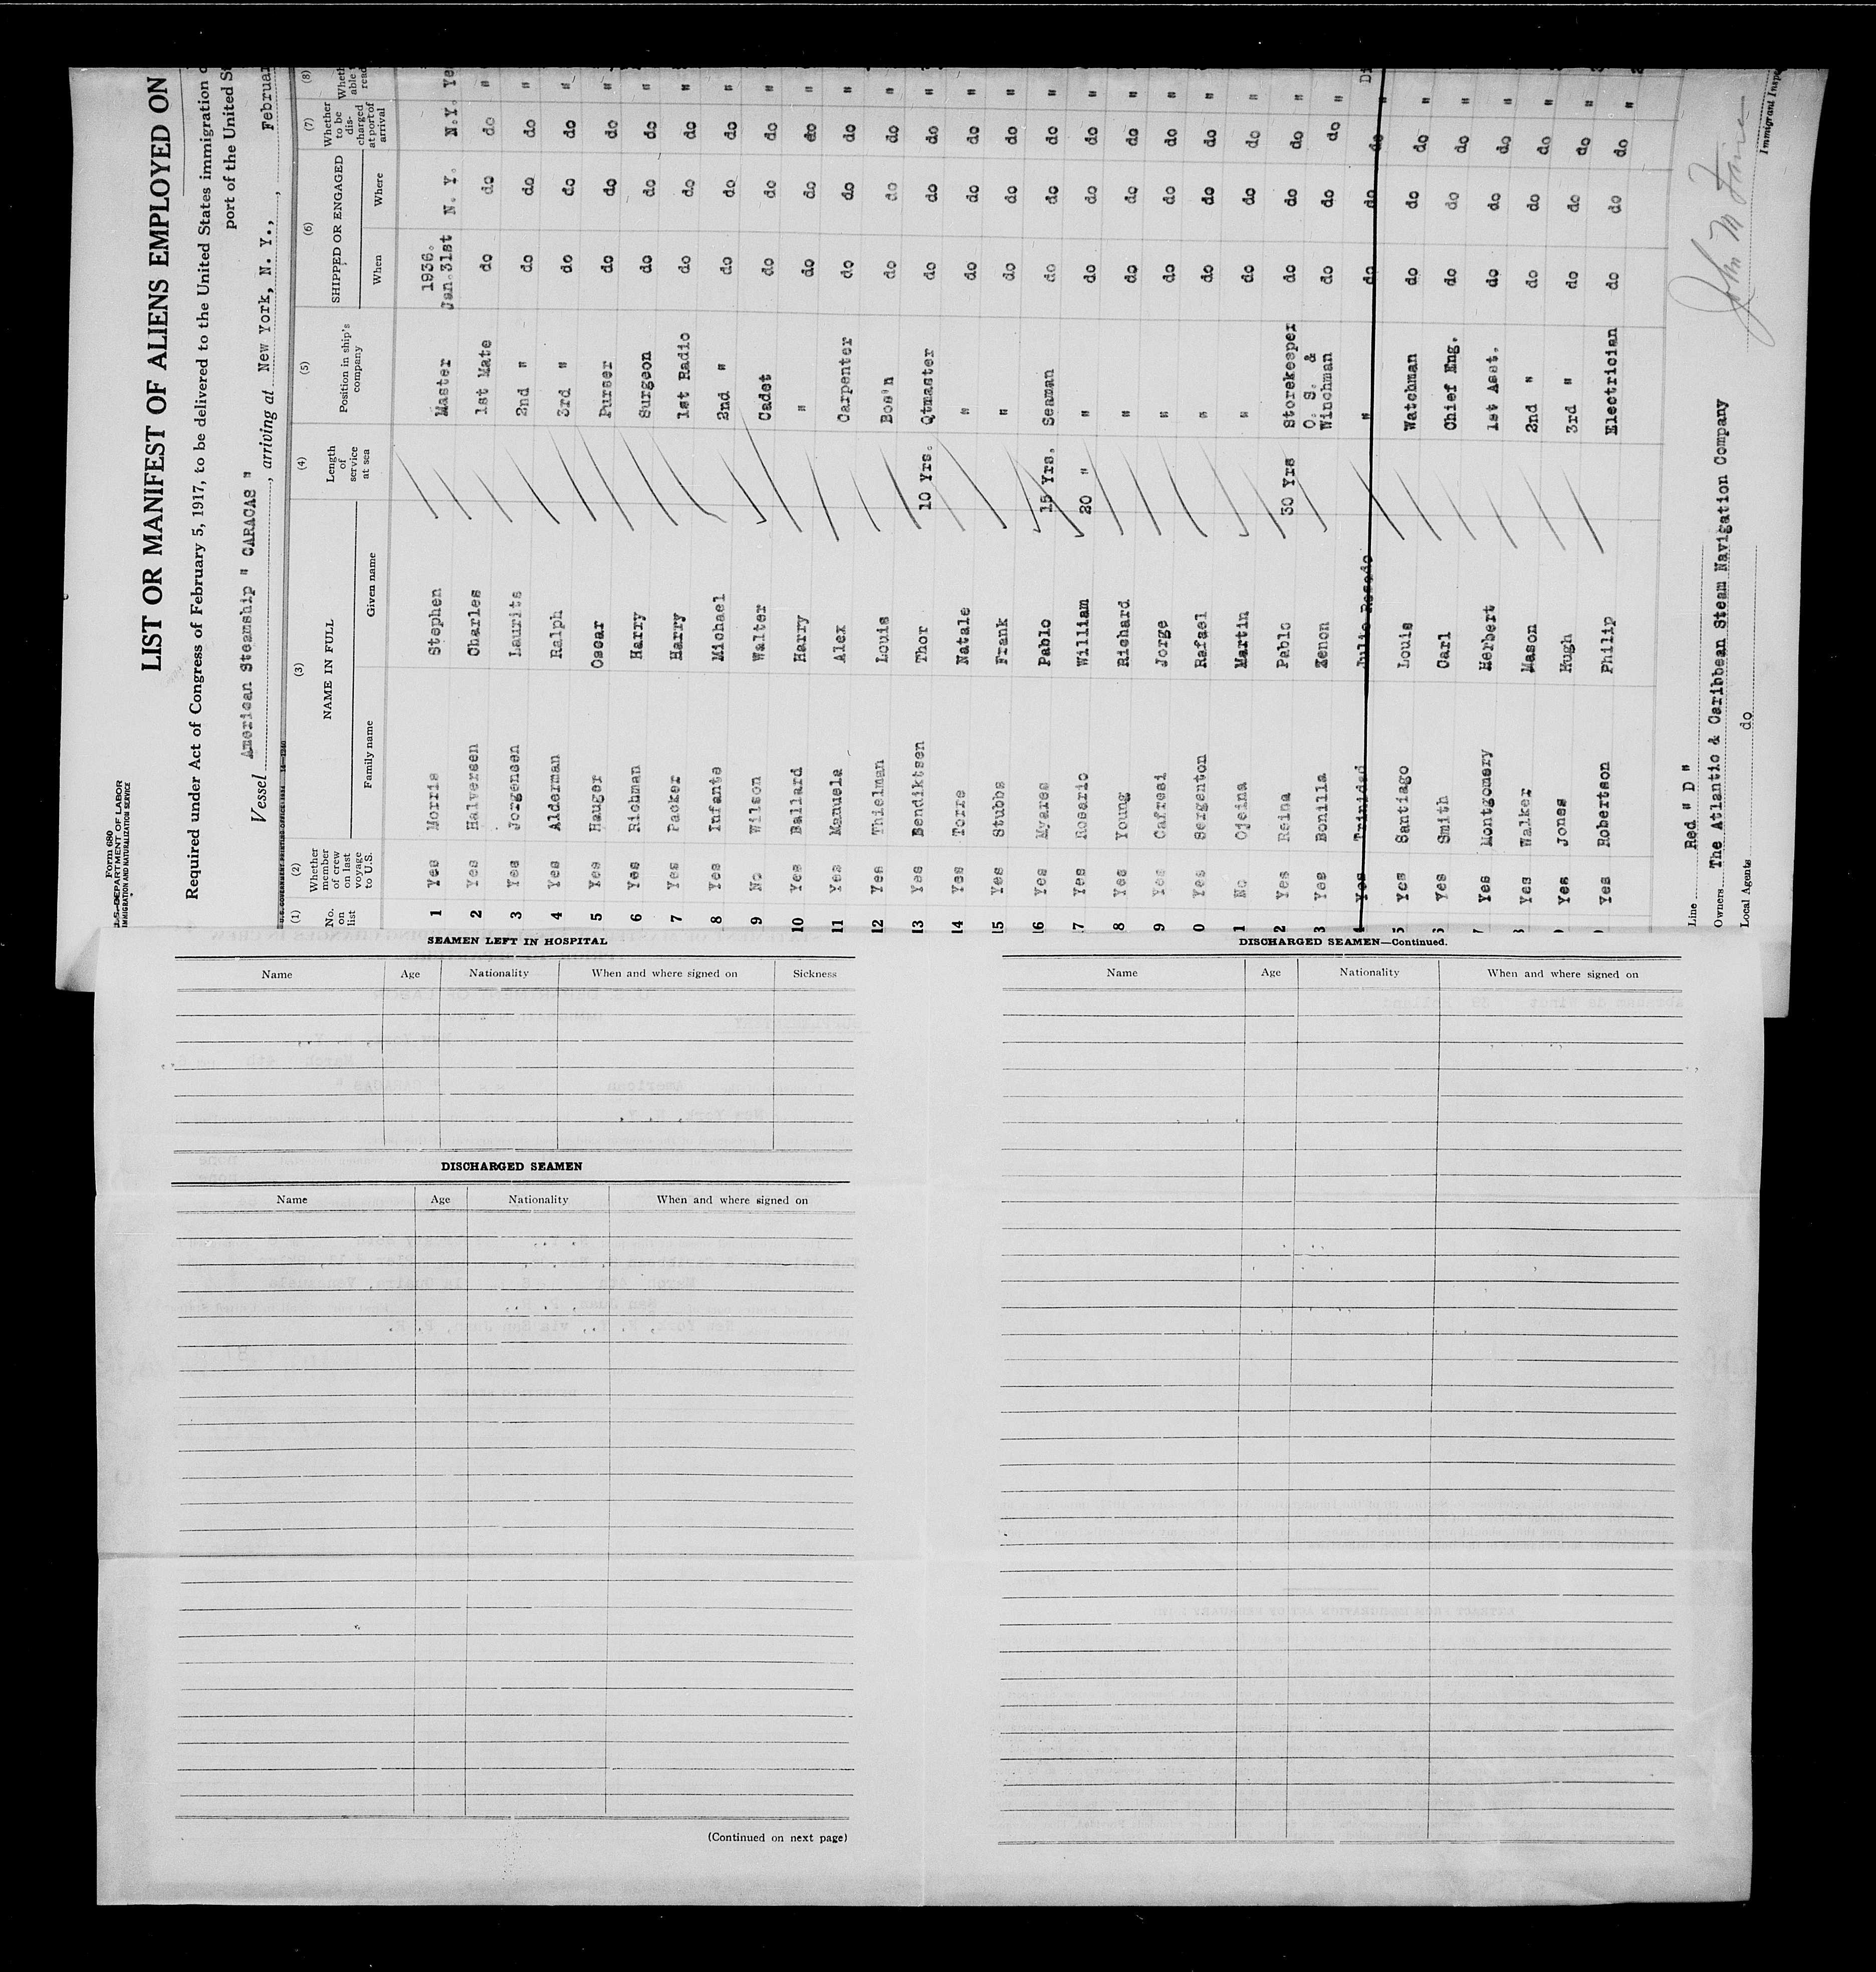 Form 680
U.S. DEPARTMENT OF LABOR
IMMIGRATION AND NATURALIZATION SERVICE
LIST OR MANIFEST OF ALIENS EMPLOYED ON
Required under Act of Congress of February 5, 1917, to be delivered to the United States immigration
port of the United
Vessel American Steamship " CARACAS ", arriving at New York, N. Y.,
(1) No. on list (2) Whether member of crew on last voyage to U.S. (3) NAME IN FULL Family name Given name (4) Length of service at sea (5) Position in ship's company (6) SHIPPED OR ENGAGED When Where (7) Whether to be discharged at port of arrival (8)
1 Yes Morris Stephen Master 1936. Jan.31st N. Y. N.Y.
2 Yes Halversen Charles 1st Mate do do do "
3 Yes Jorgensen Laurits 2nd " do do do "
4 Yes Alderman Ralph 3rd " do do do "
5 Yes Hauger Oscar Purser do do do "
6 Yes Richman Harry Surgeon do do do "
7 Yes Packer Harry 1st Radio do do do "
8 Yes Infante Michael 2nd " do do do "
9 No Wilson Walter Cadet do do do "
10 Yes Ballard Harry " do do do "
11 Yes Manuela Alex Carpenter do do do "
12 Yes Thielman Louis Bos'n do do do "
13 Yes Bendiktsen Thor 10 Yrs. Qtmaster do do do "
14 Yes Torre Natale " do do do "
15 Yes Stubbs Frank " do do do "
16 Yes Myares Pablo 15 Yrs. Seaman do do do "
7 Yes Rosario William 20 " " do do do "
8 Yes Young Richard " do do do "
9 Yes Cafresi Jorge " do do do "
0 Yes Sergenton Rafael " do do do "
1 No Ojeina Martin " do do do "
2 Yes Reina Pablo 30 Yrs Storekeeper do do do "
3 Yes Bonilla Zenon O. S. & Winchman do do do "
Yes Trinidad Julio Rosado " do do do "
5 Yes Santiago Louis Watchman do do do "
Yes Smith Carl Chief Eng. do do do "
Yes Montgomery Herbert 1st Asst. do do do "
Yes Walker Mason 2nd " do do do "
Yes Jones Hugh 3rd " do do do "
Yes Robertson Philip Electrician do do do "
Line Red " D "
Owners The Atlantic & Caribbean Steam Navigation Company
Local Agents do
SEAMEN LEFT IN HOSPITAL
Name Age Nationality When and where signed on Sickness
DISCHARGED SEAMEN
Name Age Nationality When and where signed on
(Continued on next page)
DISCHARGED SEAMEN—Continued.
Name Age Nationality When and where signed on